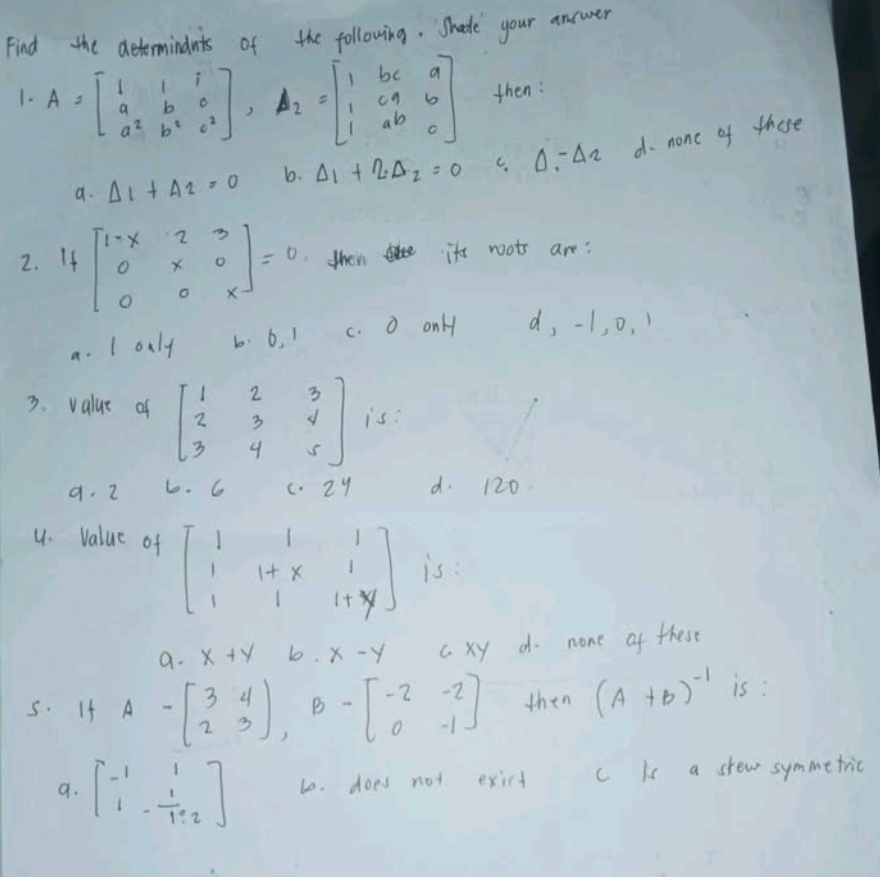 Find the determindnts of the following. Shade your answer
1. A = [ 1 1 i ] , Δ2 = [ 1 bc a ] then:
a b c 1 ca b
a² b² c² 1 ab c
a. Δ1 + Δ2 = 0 b. Δ1 + 2.Δ2 = 0 c. Δ.-Δ2 d. none of these
2. If [ 1-x 2 3 ] = 0. then its roots are:
0 x 0
0 0 x
a. 1 only b. 0,1 c. 0 only d, -1,0,1
3. value of [ 1 2 3 ] is:
2 3 4
3 4 5
a. 2 b. 6 c. 24 d. 120.
4. Value of [ 1 1 1 ] is:
1 1+x 1
1 1 1+y
a. x+y b. x-y c. xy d. none of these
5. If A - [ 3 4 ], B - [ -2 -2 ] then (A+B)⁻¹ is:
2 3 0 -1
a. [ -1 1 ] b. does not exist c a skew symmetric
1